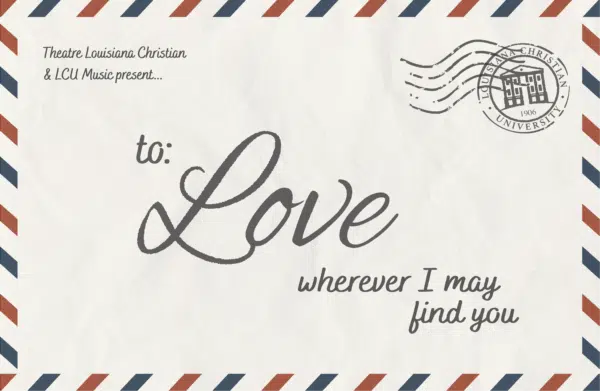 Theatre Louisiana Christian
& LCU Music present...
LOUISIANA CHRISTIAN
1906
UNIVERSITY
to:
Love
wherever I may
find you